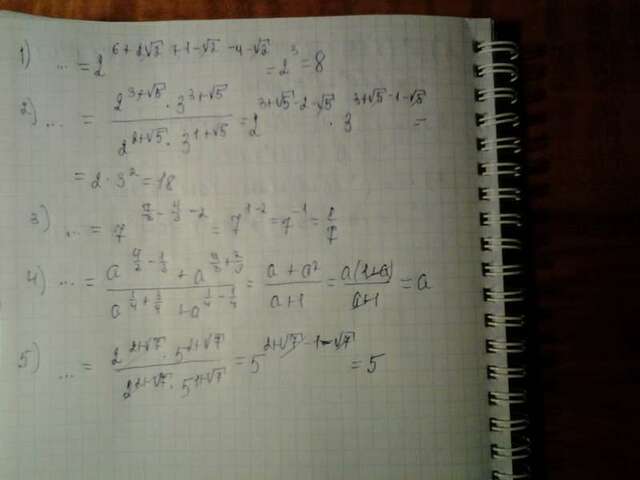 1) ... = 2^{6+2√2+1-√2-4-√2} = 2^3 = 8
2) ... = \frac{2^{3+√5} · 3^{3+√5}}{2^{2+√5} · 3^{1+√5}} = 2^{3+√5-2-√5} · 3^{3+√5-1-√5} =
= 2 · 3^2 = 18
3) ... = 7^{\frac{7}{3}-\frac{4}{3}-2} = 7^{1-2} = 7^{-1} = \frac{1}{7}
4) ... = \frac{a^{\frac{4}{3}-\frac{1}{3}} + a^{\frac{4}{3}+\frac{2}{3}}}{a^{\frac{1}{4}+\frac{3}{4}} + a^{\frac{1}{4}-\frac{1}{4}}} = \frac{a + a^2}{a+1} = \frac{a(1+a)}{a+1} = a
5) ... = \frac{2^{2+√7} · 5^{2+√7}}{2^{2+√7} · 5^{1+√7}} = 5^{2+√7-1-√7} = 5